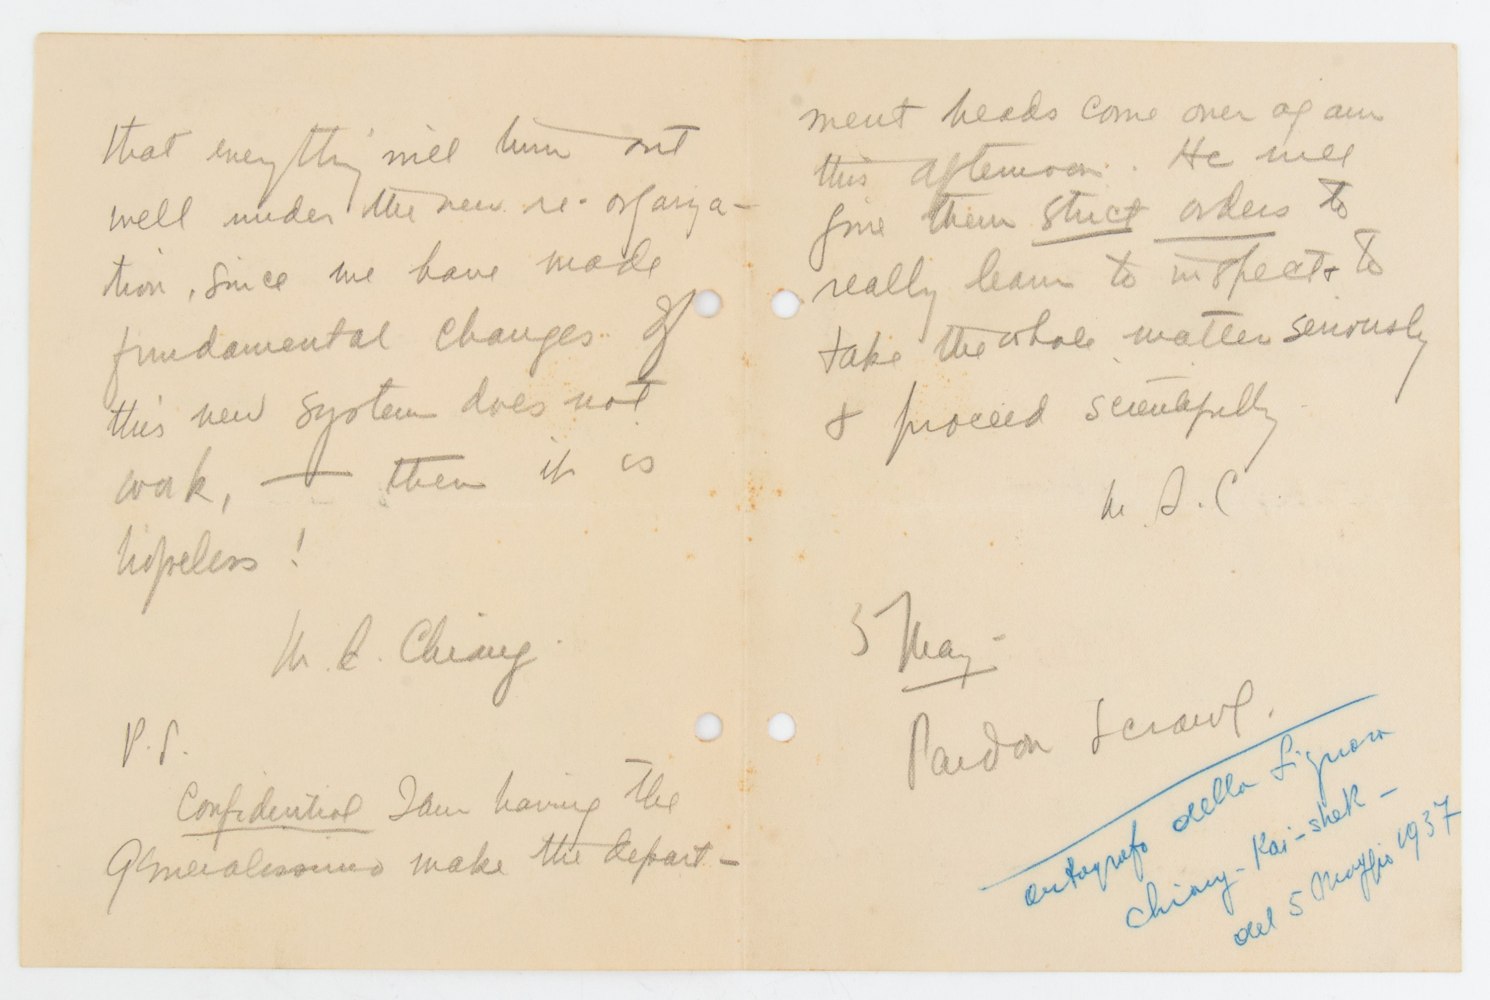 that everything will turn out
well under the new re-organiza-
tion, since we have made
fundamental changes. If
this new system does not
work, — then it is
hopeless!
M. S. Chiang.
P.S.
Confidential I am having the
Generalissimo make the depart-
ment heads come over again
this afternoon. He will
give them strict orders to
really learn to inspect & to
take the whole matter seriously
& proceed scientifically
M. S. C
5 May-
Pardon scrawl.
autografo della Signora
Chiang-Kai-shek-
del 5 Maggio 1937